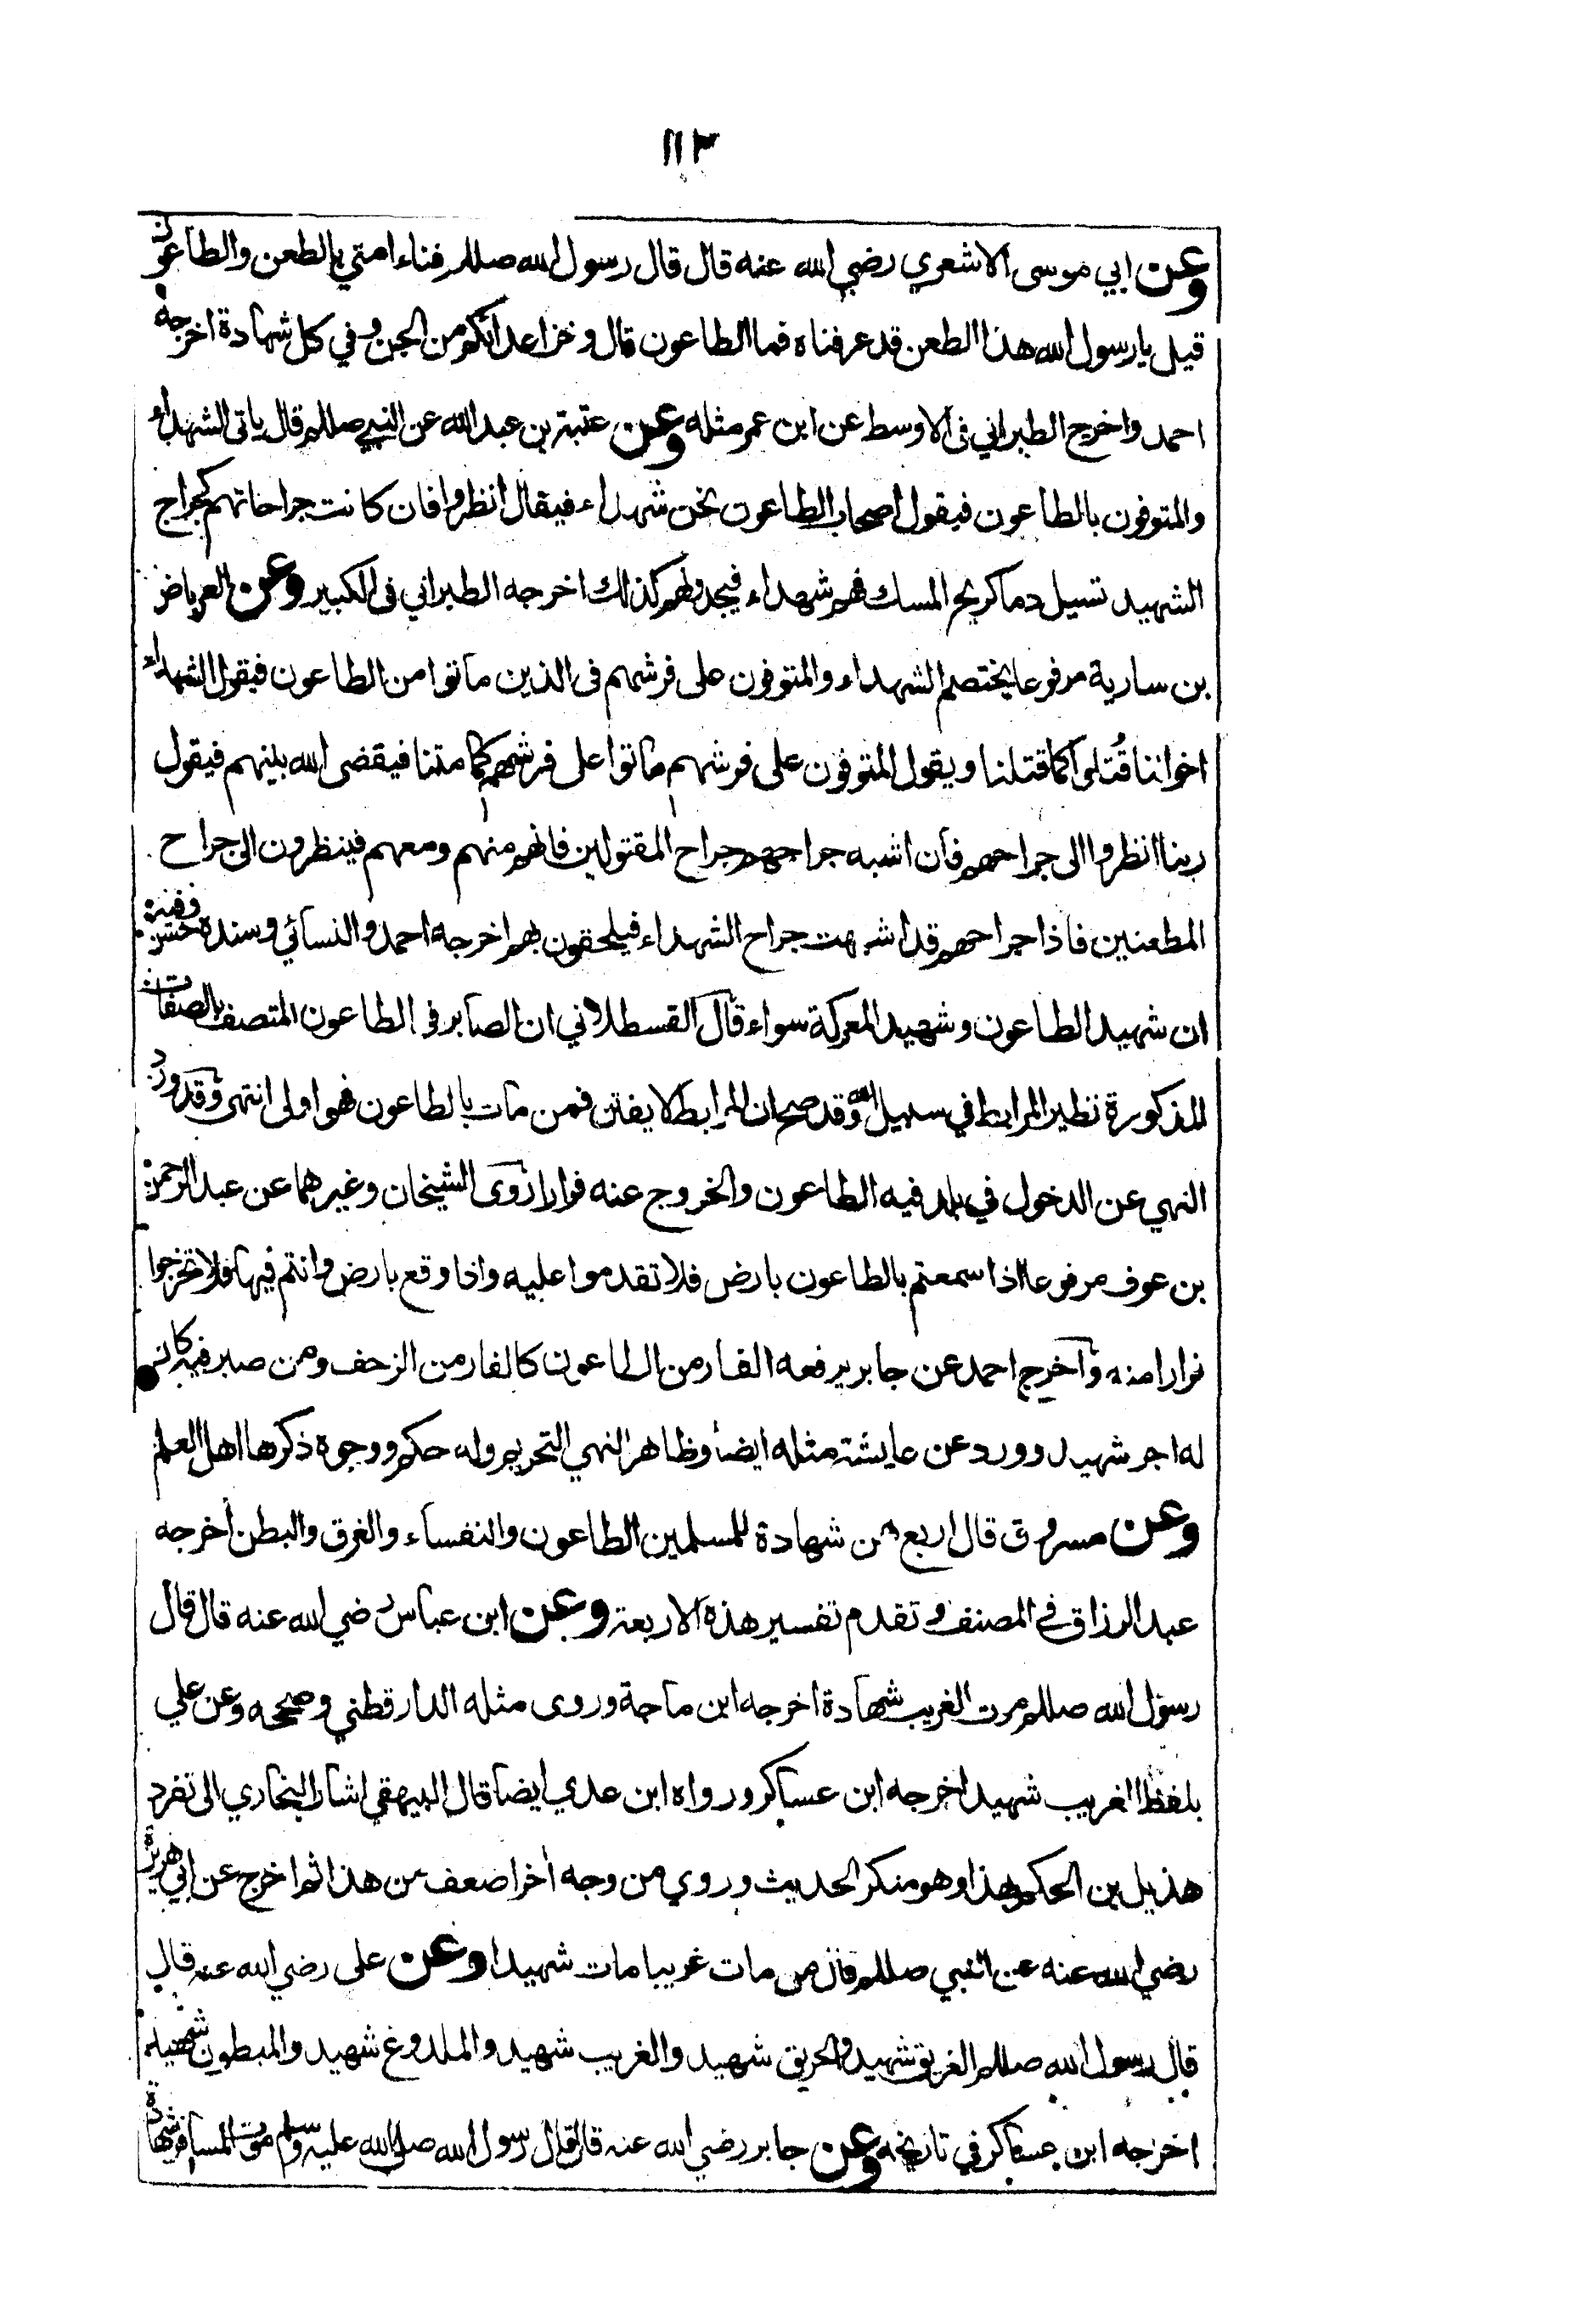 ١١٣
وعن ابي موسى الاشعري رضي الله عنه قال قال رسول الله صللم فناء امتي بالطعن والطاعون
قيل يا رسول الله هذا الطعن قد عرفناه فما الطاعون قال وخز اعدائكم من الجن وفي كل شهادة اخرجه
احمد واخرج الطبراني في الاوسط عن ابن عمر مثله وعن عتبة بن عبد الله عن النبي صللم قال ياتى الشهداء
والمتوفون بالطاعون فيقول اصحاب الطاعون نحن شهداء فيقال انظروا فان كانت جراحاتهم كجراح
الشهيد تسيل دما كريح المسك فهم شهداء فيجدونهم كذلك اخرجه الطبراني فى الكبير وعن العرباض
بن سارية مرفوعا يختصم الشهداء والمتوفون على فرشهم فى الذين ماتوا من الطاعون فيقول الشهداء
اخواننا قُتلوا كما قتلنا ويقول المتوفون على فرشهم ماتوا على فرشهم كما متنا فيقضى الله بينهم فيقول
ربنا انظروا الى جراحهم فان اشبه جراحهم جراح المقتولين فانهم منهم ومعهم فينظرون الى جراح
المطعنين فاذا جراحهم قد اشبهت جراح الشهداء فيلحقون بهم اخرجه احمد والنسائي وسنده حسن وفيه
ان شهيد الطاعون وشهيد المعركة سواء قال القسطلاني ان الصابر في الطاعون المتصف بالصفات
المذكورة نظير المرابط في سبيل الله وقد صح ان المرابط لا يفتن فمن مات بالطاعون فهو اولى انتهى وقد ورد
النهي عن الدخول في بلد فيه الطاعون والخروج عنه فرارا روى الشيخان وغيرهما عن عبد الرحمن
بن عوف مرفوعا اذا سمعتم بالطاعون بارض فلا تقدموا عليه واذا وقع بارض وانتم فيها فلا تخرجوا
فرارا منه واخرج احمد عن جابر يرفعه الفار من الطاعون كالفار من الزحف ومن صبر فيه كان
له اجر شهيد وورد عن عايشة مثله ايضا وظاهر النهي التحريم وله حكم ووجوه ذكرها اهل العلم
وعن مسروق قال اربع هن شهادة للمسلمين الطاعون والنفساء والغرق والبطن اخرجه
عبد الرزاق في المصنف وتقدم تفسير هذه الاربعة وعن ابن عباس رضي الله عنه قال قال
رسول الله صللم موت الغريب شهادة اخرجه ابن ماجة وروى مثله الدارقطني وصححه وعن علي
بلفظ الغريب شهيد اخرجه ابن عساكر ورواه ابن عدي ايضا قال البيهقي اشار البخاري الى تفرد
هذيل بن الحكم بهذا وهو منكر الحديث وروي من وجه اخر اضعف من هذا ثم اخرج عن ابي هريرة
رضي الله عنه عن النبي صللم قال من مات غريبا مات شهيدا وعن على رضي الله عنه قال
قال رسول الله صللم الغريق شهيد والحريق شهيد والغريب شهيد والملدوغ شهيد والمبطون شهيد
اخرجه ابن عساكر في تاريخه وعن جابر رضي الله عنه قال قال رسول الله صلى الله عليه وسلم موت المسافر شهادة